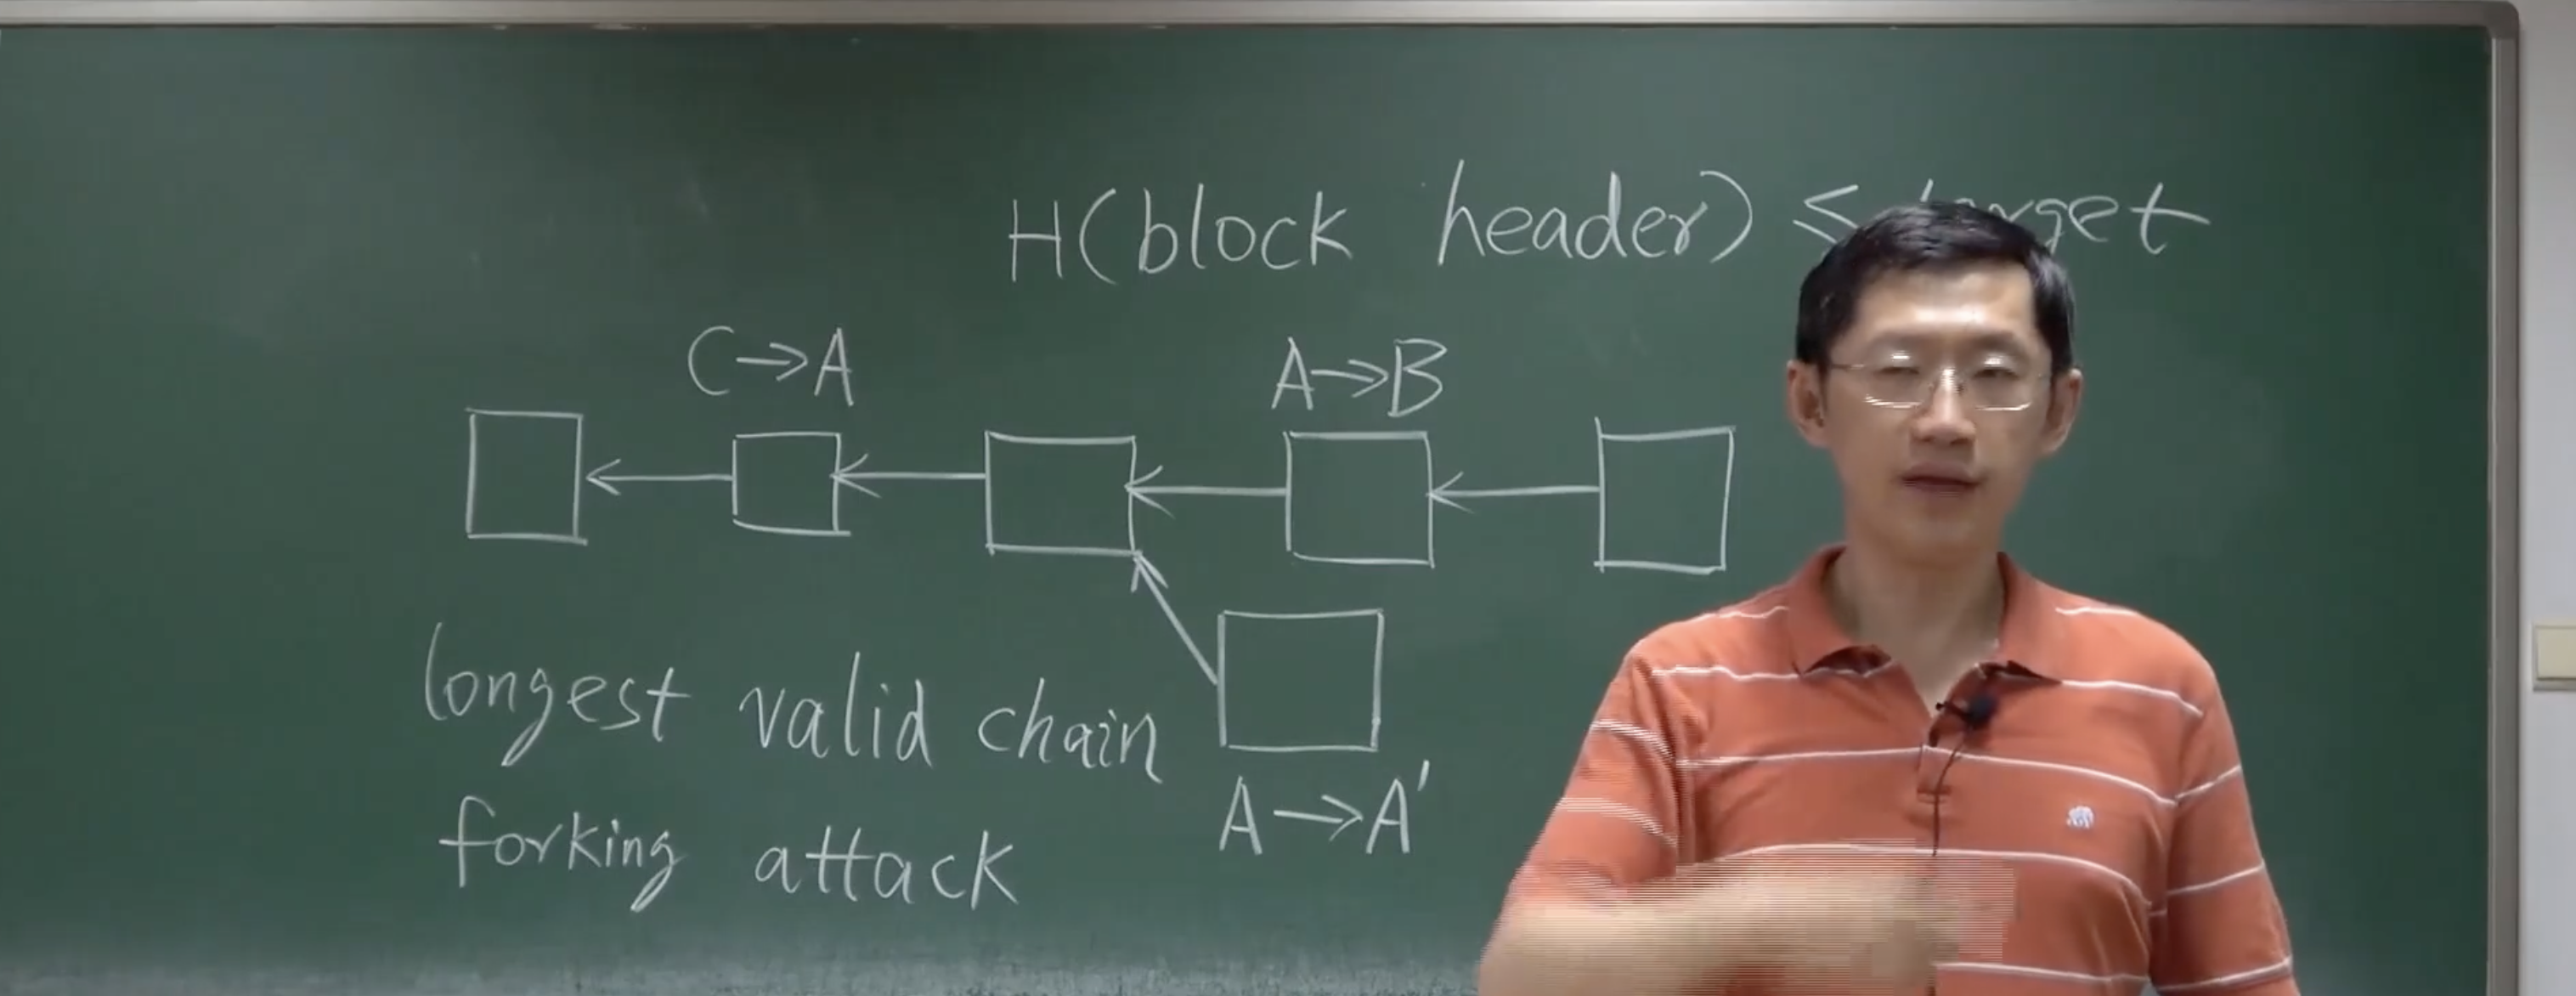 H(block header) ≤ target
C→A
A→B
longest valid chain
A→A'
forking attack